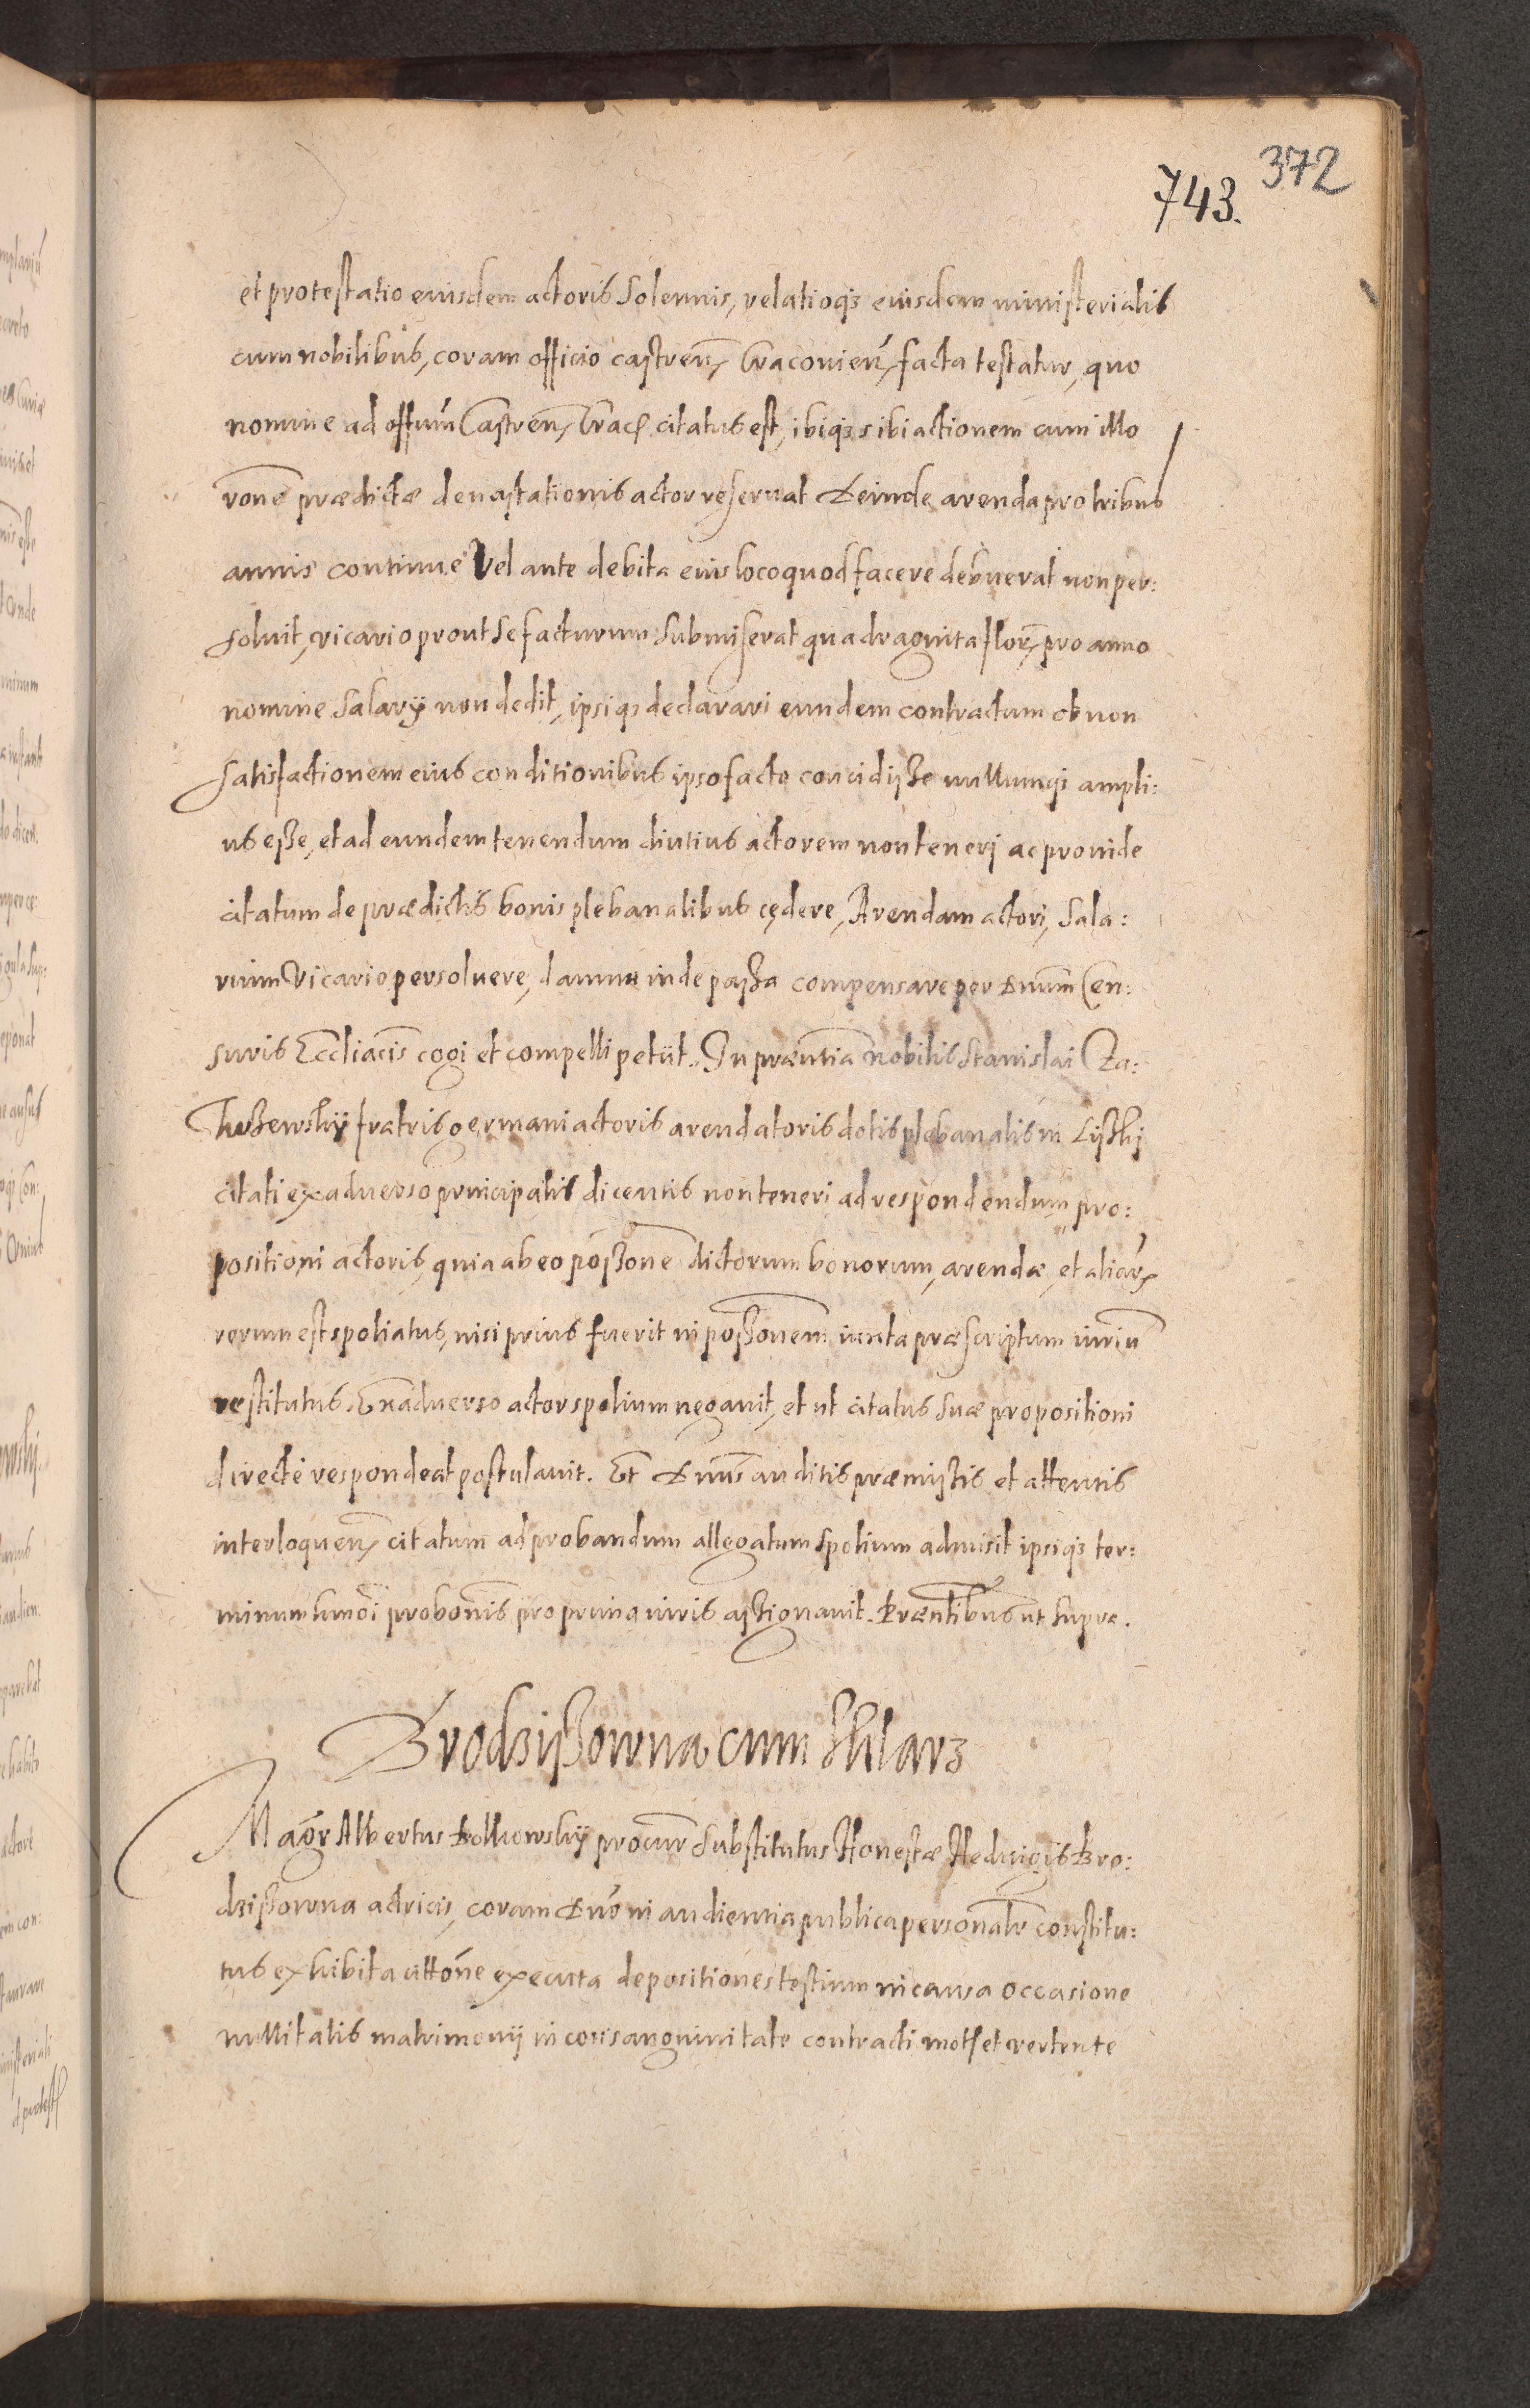 372
743.
et protestatio eiusdem actoris solennis, relatioq3 eiusdem ministerialis
cum nobilibus, coram officio castren, Cracovien, facta testatur, quo
nomine ad offum Castren, Crac. citatus est, ibiq3 sibi actionem cum illo
rone prædictæ devastationis actor reservat Deinde arenda pro tribus
annis continue vel ante debita eius loco quod facere debuerat non per:
soluit, vicario prout se facturum submiserat quadraginta flor, pro anno
nomine salarÿ non dedit, ipsiq3 declarari eundem contractum ob non
satisfactionem eius conditionibus ipso facto concidisse nullumq3 ampli:
us esse, et ad eundem tenendum diutius actorem non teneri ac proinde
citatum de prædictis bonis plebanalibus cędere, Arendam actori, Sala:
rium Vicario persoluere, damna inde passa compensare per Dnum Cen:
suris Eccliacis cogi et compelli petiit. In præntia nobilis Stanislai Za:
fratris germani actoris arendatoris dotis plebanalis in Lissky
citati ex adverso principalis dicentis non teneri ad respondendum pro:
positioni actoris, quia ab eo possone dictorum bonorum, arendæ, et aliar,
rerum est spoliatus, nisi prius fuerit in possonem iuxta præscriptum iuriu
restitutus. Ex adverso actor spolium negavit, et ut citatus suæ propositioni
directe respondeat postulavit. Et Dnus auditis præmissis et attentis
interloquen, citatum ad probandum allegatum spolium admisit ipsiq3 ter:
minum humoi probonis pro prima iuris assignavit. Præntibus ut supra.
Brodzissowna cum Sklarz
Magr Albertus procur substitutus Honestæ Hedwigis Bro:
dzissowna actricis, coram Dno in audientia publica personalr constitu:
tus exhibita cittone executa depositiones testium in causa occasione
nullitatis matrimonij in consanguinitate contracti mota et vertente